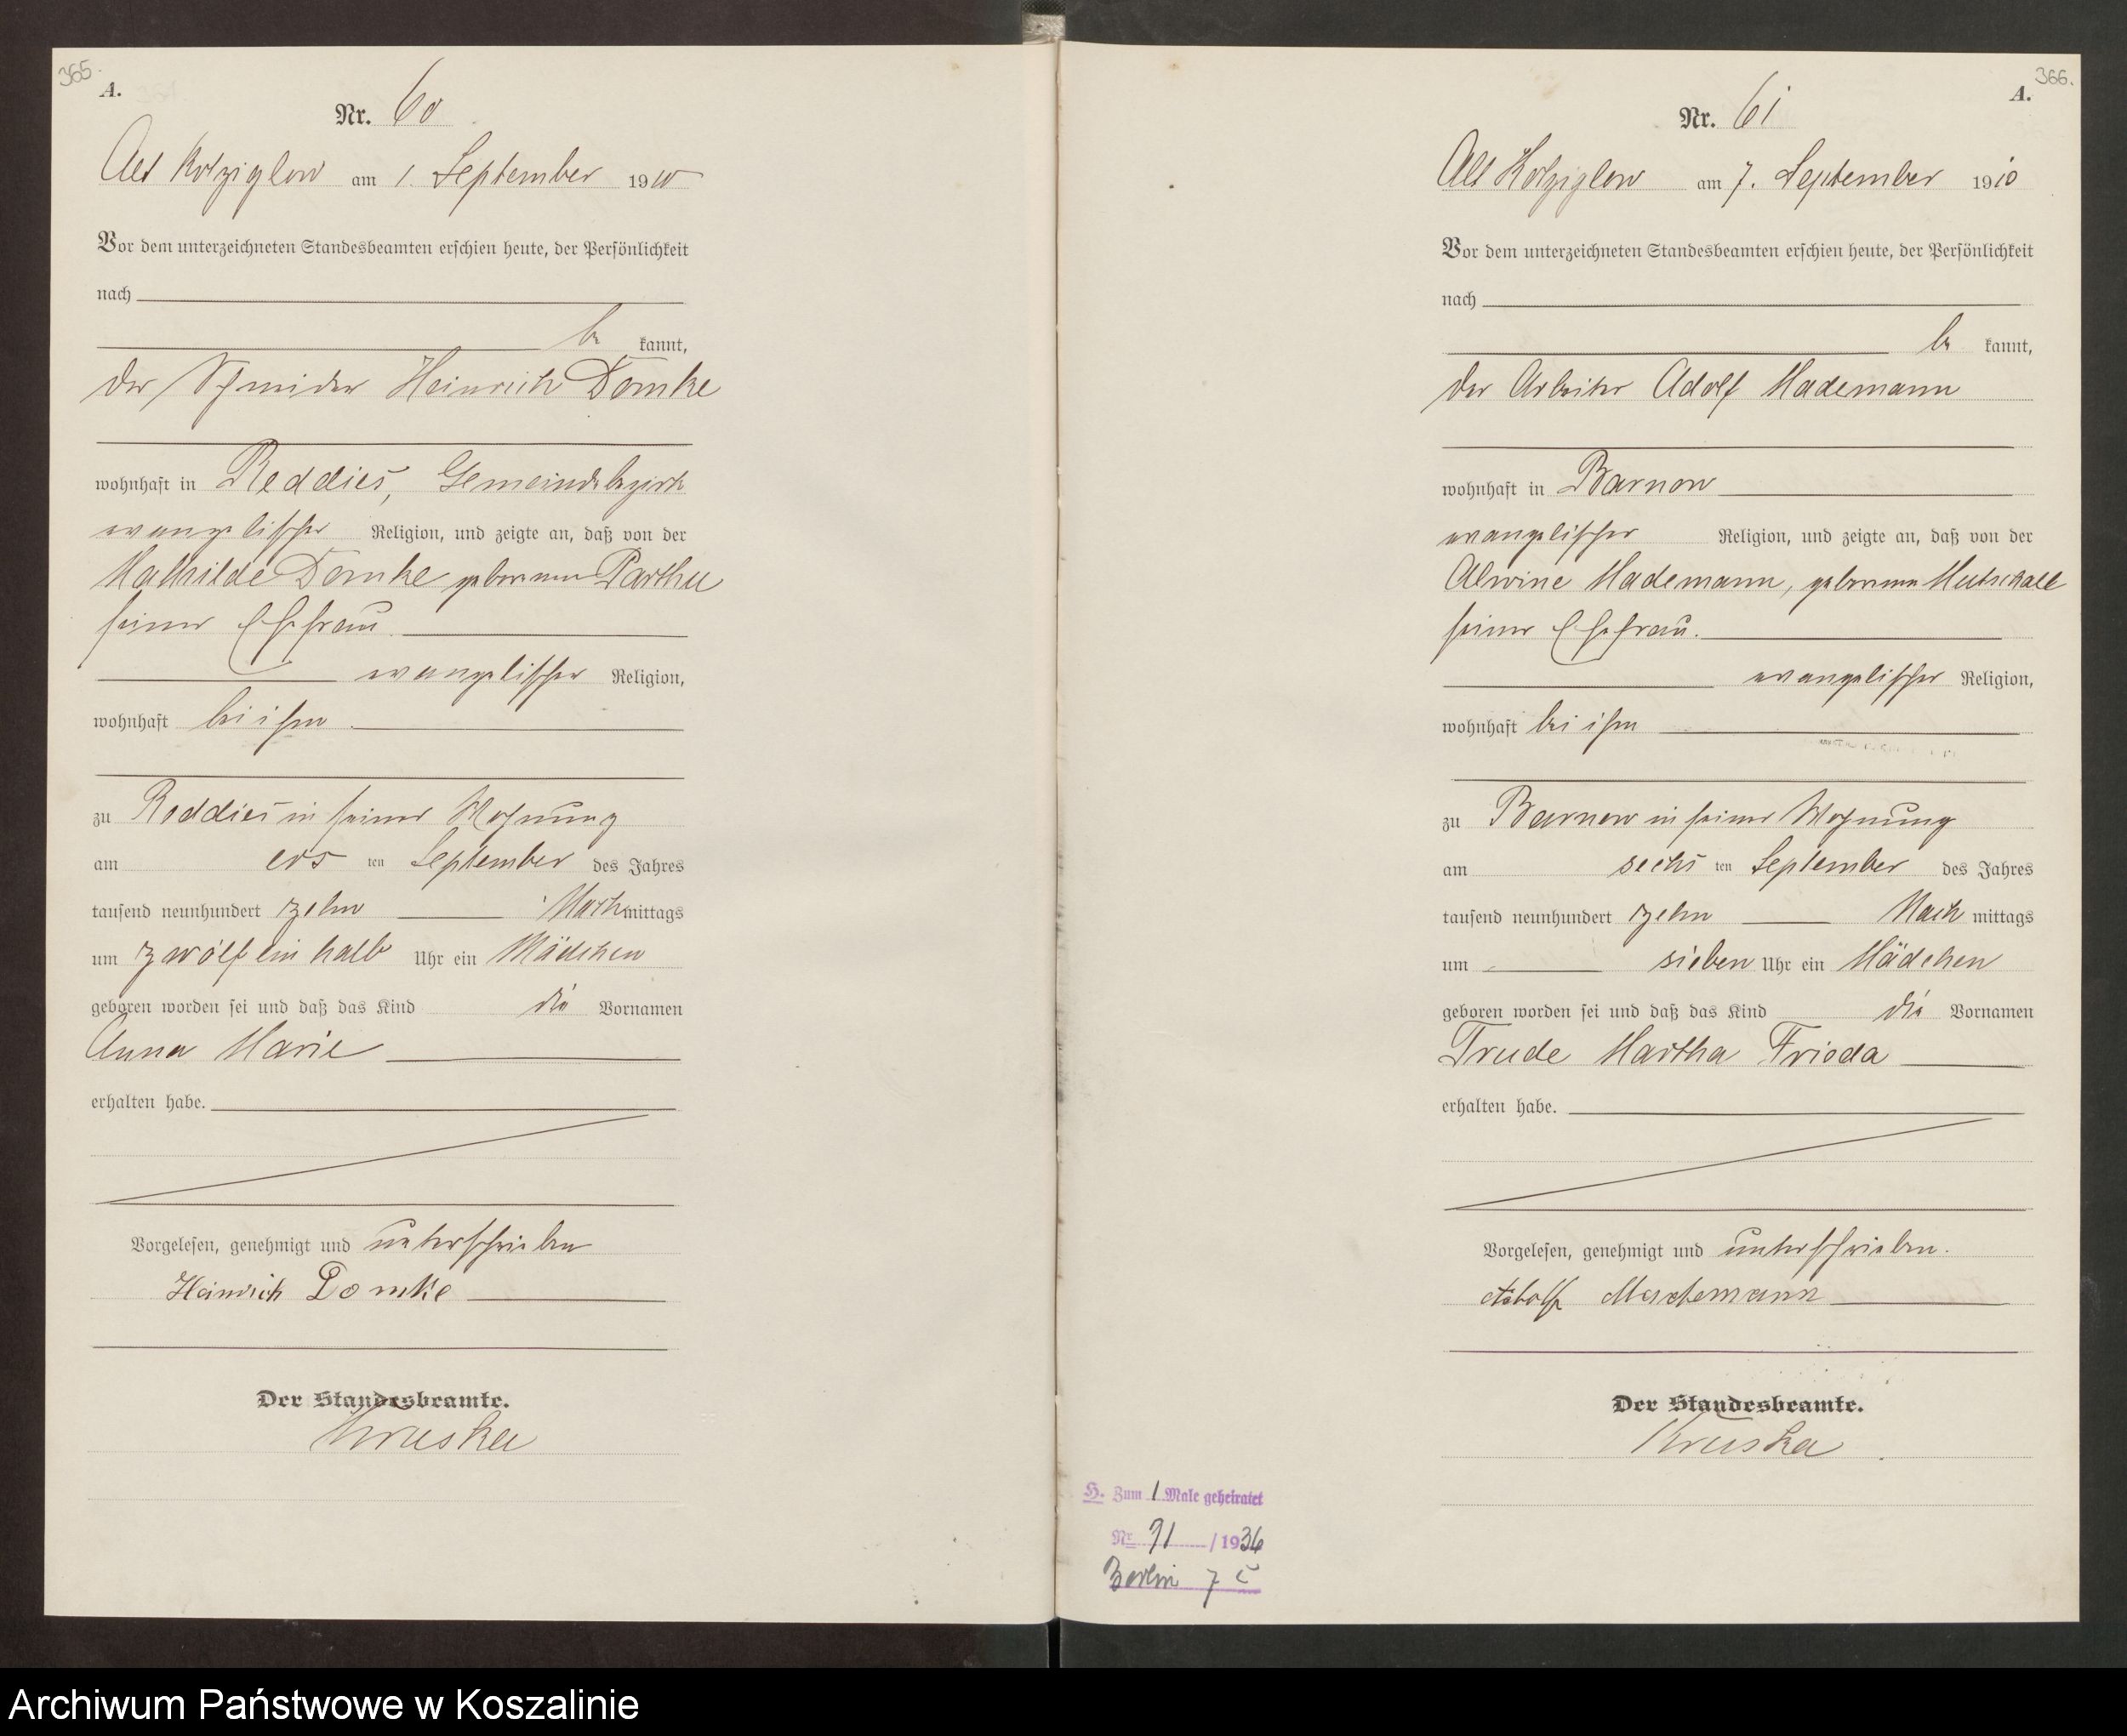 365.
A.
Nr. 60
Alt Kolziglow am 1. September 1910
Vor dem unterzeichneten Standesbeamten erschien heute, der Persönlichkeit
nach
be kannt,
der Schneider Heinrich Domke
wohnhaft in Reddies, Gemeindebezirk
evangelischer Religion, und zeigte an, daß von der
Mathilde Domke geborenen
seiner Ehefrau
evangelischer Religion,
wohnhaft bei ihm
zu Reddies in seiner Wohnung
am ers ten September des Jahres
tausend neunhundert zehn Nachmittags
um zwölf ein halb Uhr ein Mädchen
geboren worden sei und daß das Kind die Vornamen
Anna Marie
erhalten habe.
Vorgelesen, genehmigt und unterschrieben
Heinrich Domke
Der Standesbeamte.
Kruska
366.
A.
Nr. 61
Alt Kolziglow am 7. September 1910
Vor dem unterzeichneten Standesbeamten erschien heute, der Persönlichkeit
nach
be kannt,
der Arbeiter Adolf Mademann
wohnhaft in Barnow
evangelischer Religion, und zeigte an, daß von der
Alwine Mademann, geborenen Mutschall
seiner Ehefrau.
evangelischer Religion,
wohnhaft bei ihm
zu Barnow in seiner Wohnung
am sechs ten September des Jahres
tausend neunhundert zehn Nach mittags
um sieben Uhr ein Mädchen
geboren worden sei und daß das Kind die Vornamen
Trude Martha Frieda
erhalten habe.
Vorgelesen, genehmigt und unterschrieben.
Adolf Mademann
Der Standesbeamte.
Kruska
H. Zum 1 Male geheiratet
Nr. 71 /1936
Berlin 7 c
Archiwum Państwowe w Koszalinie